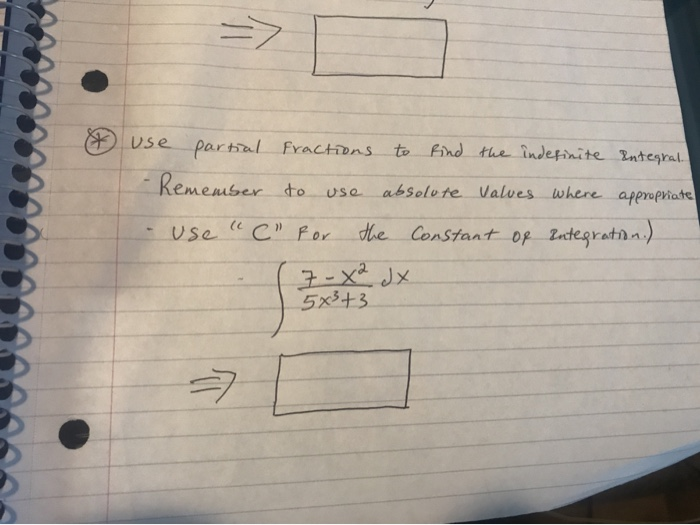 =>
* Use partial Fractions to Find the indefinite Integral
- Remember to use absolute Values where appropriate
- Use "C" For the Constant of Integration.)
- ∫ 7 - x² dx
5x³+3
=>